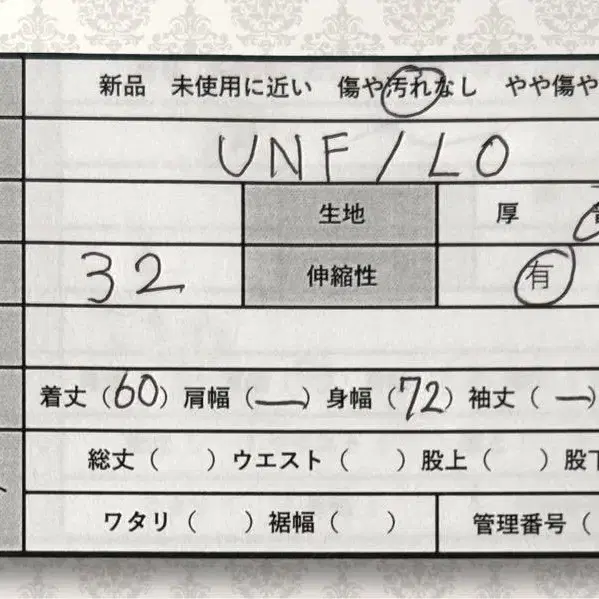 新品 未使用に近い 傷や汚れなし やや傷や
UNF/LO
生地 厚
32 伸縮性 有
着丈（60）肩幅（—）身幅（72）袖丈（—）
総丈（ ）ウエスト（ ）股上（ ）股下
ワタリ（ ）裾幅（ ） 管理番号（